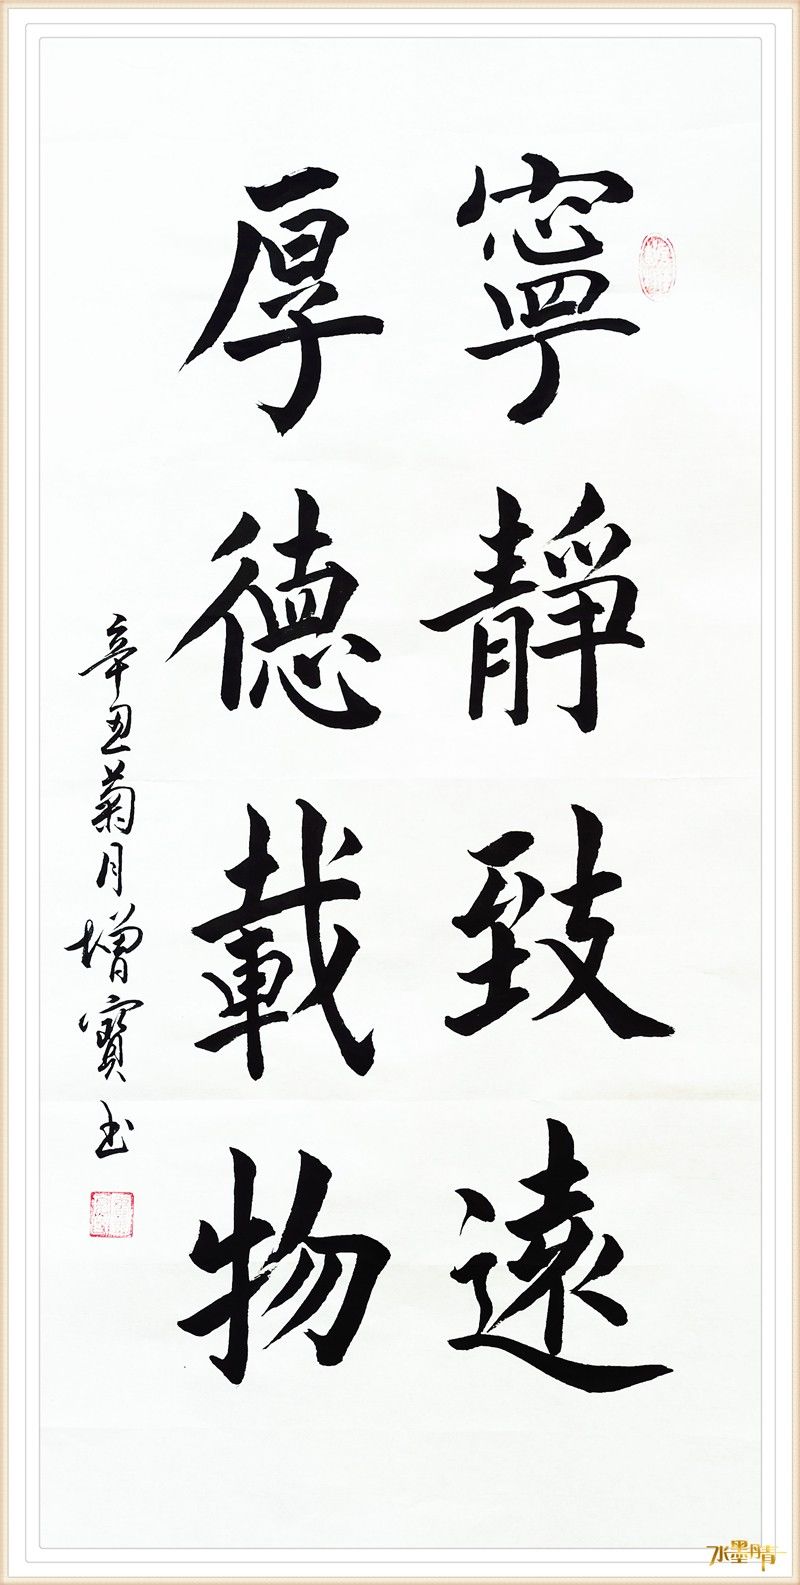 寧靜致遠
厚德載物
辛丑菊月增寶书
水墨丹青